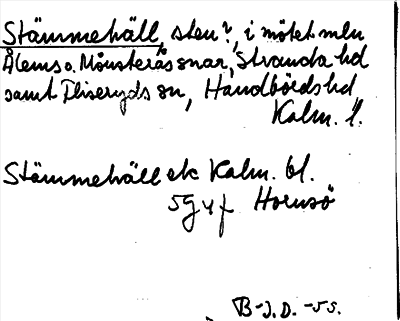 Stämmehäll, sten?, i mötet mln
Ålems o. Mönsterås snar, Stranda hd
samt Fliseryds sn, Handbörds hd
Kalm. l.
Stämmehäll ek Kalm. bl.
5g y f Hornsö
B-J.D. -55.